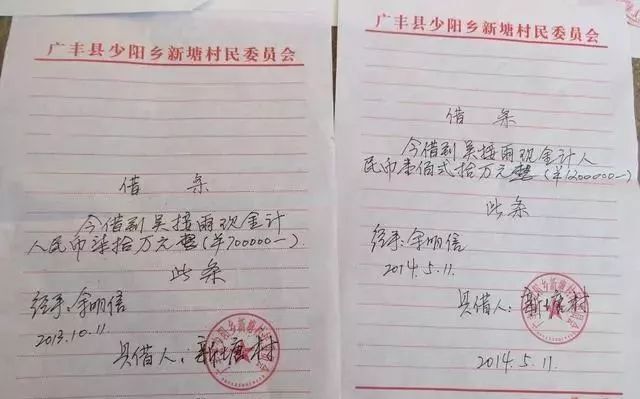 广丰县少阳乡新塘村民委员会
借 条
今借到吴接雨现金计
人民币柒拾万元整(￥700000—).
此条
经手:余明信
2013.10.11.
具借人:新塘村
广丰县少阳乡新塘村民委员会
借 条
今借到吴接雨现金计人
民币壹佰弍拾万元整(￥1200000—)
此条
经手:余明信
2014.5.11.
具借人:新塘村
2014.5.11.